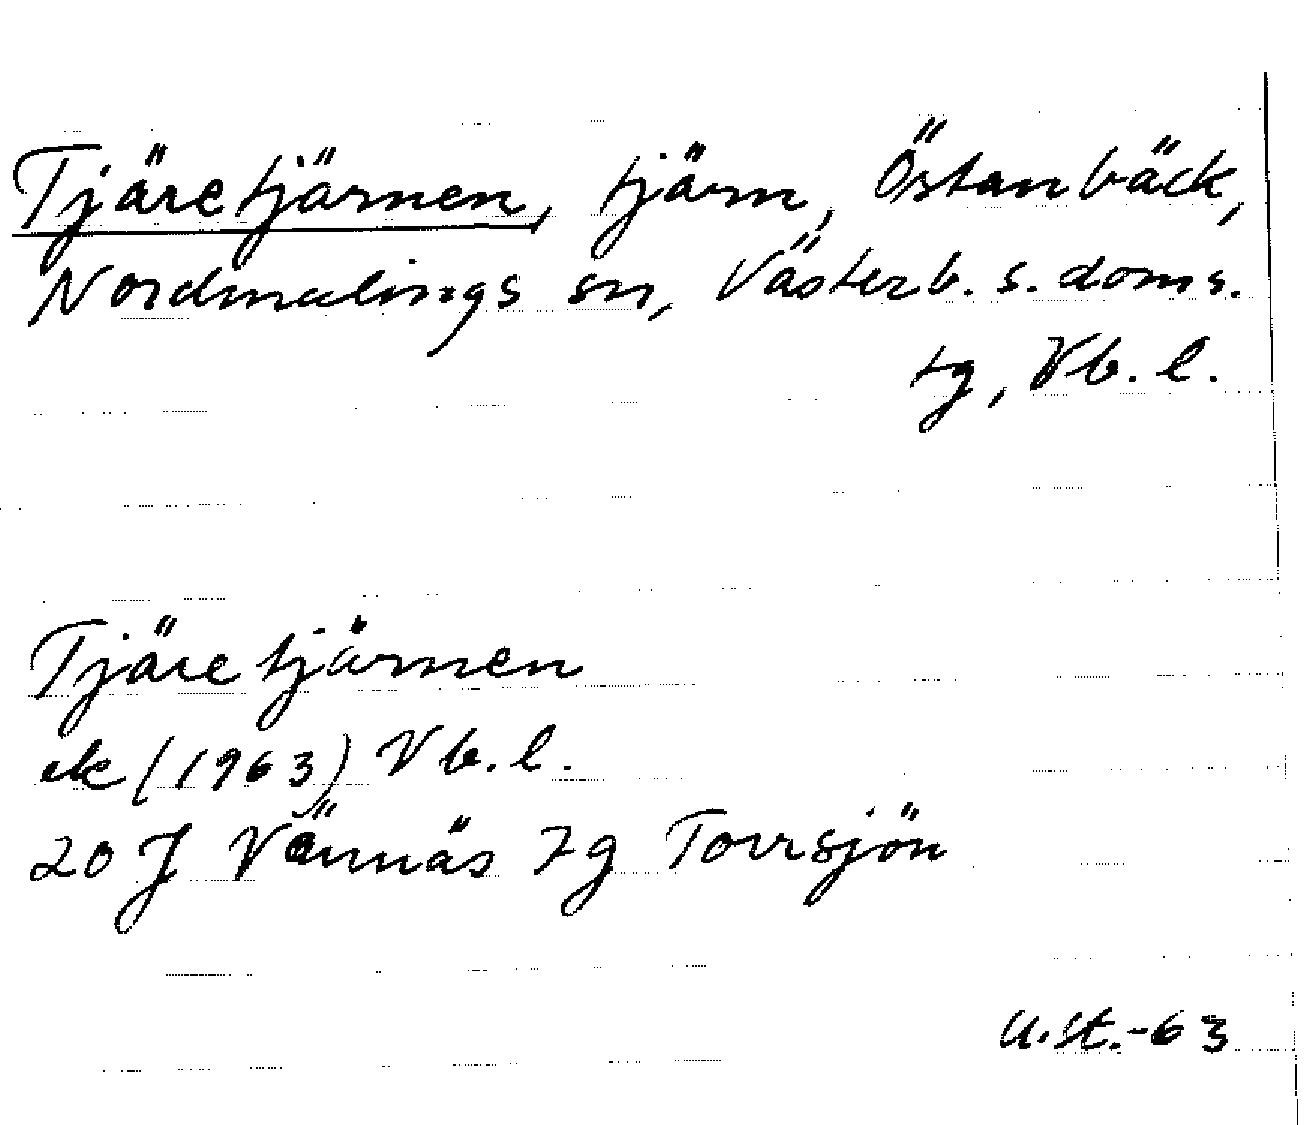 Tjäretjärnen, tjärn, Östanbäck,
Nordmalings sn, Västerb. s. doms.
tg, Vb. l.
Tjäretjärnen
ek (1963) Vb. l.
20 J Vännäs 7g Torrsjön
U.St.-63